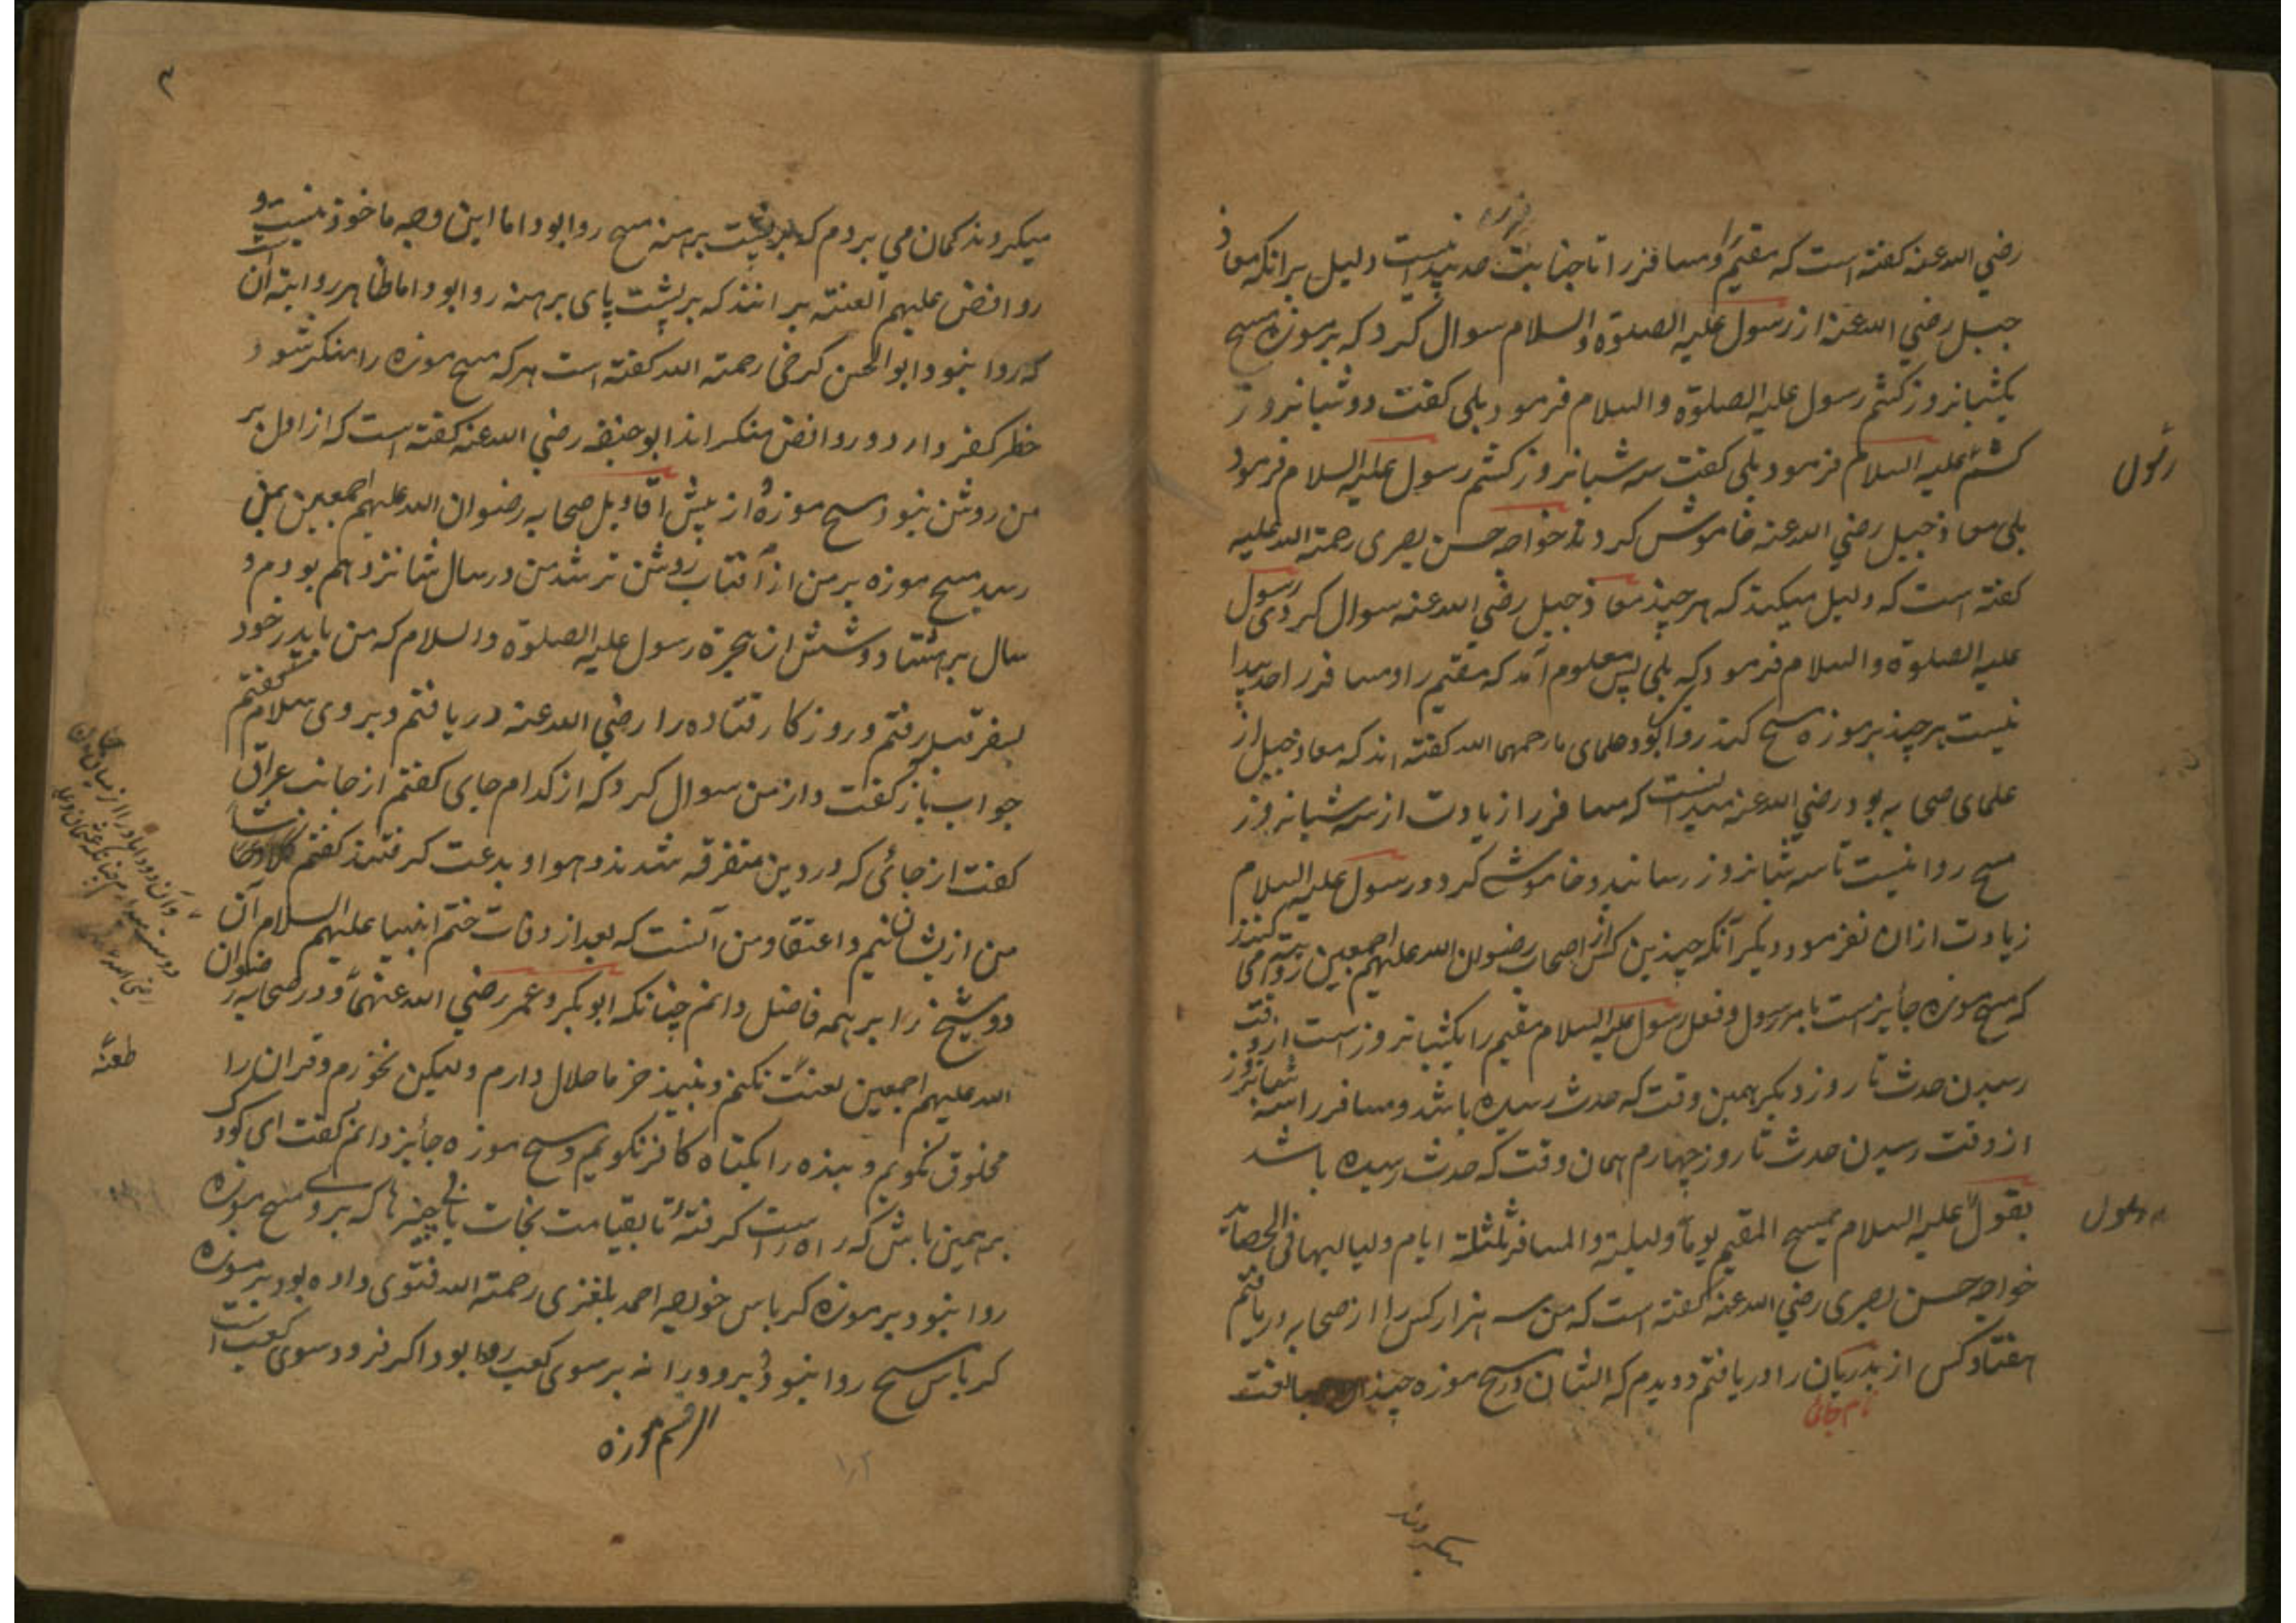 رضي الله عنه كفته است كه مقيم و مسافر را تا جنابت حد پيدا نيست دليل برانكه معاذ
جبل رضي الله عنه از رسول عليه الصلوة والسلام سوال كرد كه بر موزه مسح
يكشبانروز كشم رسول عليه الصلوة والسلام فرمود بلى كفت دو شبانروز
كشم عليه السلام فرمود بلى كفت سه شبانروز كشم رسول عليه السلام فرمود
رسول
بلى معاذ جبل رضي الله عنه خاموش كرد خواجه حسن بصرى رحمة الله عليه
كفته است كه دليل ميكند كه هر چند معاذ جبل رضي الله عنه سوال كردى رسول
عليه الصلوة والسلام فرمود كه بلى پس معلوم آمد كه مقيم را و مسافر را حد پيدا
نيست هر چند بر موزه مسح كند روا بود علماى ما رحمهم الله كفته اند كه معاذ جبل از
علماى صحابه بود رضي الله عنه ميدانست كه مسافر را زيادت از سه شبانروز
مسح روا نيست تا سه شبانروز رسانيد و خاموش كرد و رسول عليه السلام
زيادت ازان نفرمود ديكر آنكه چندين كس از اصحاب رضوان الله عليهم اجمعين روايت مى كنند
كه مسح موزه جايز است بامر رسول و فعل رسول عليه السلام مقيم را يكشبانروز است از وقت
رسيدن حدث تا روز ديكر همين وقت كه حدث رسيده باشد و مسافر را سه شبانروز
از وقت رسيدن حدث تا روز چهارم همان وقت كه حدث رسيده باشد
بقول عليه السلام يمسح المقيم يوما وليلة والمسافر ثلثة ايام ولياليها فى
خواجه حسن بصرى رضي الله عنه كفته است كه من سه هزار كس را از صحابه دريافتم
هفتاد كس از بدريان را دريافتم و ديدم كه ايشان در مسح موزه چندان مبالغت
ميكردند
٣
ميكردند كمان مي بردم كه بر پشت برهنه مسح روا بود اما اين وجه ماخوذ نيست و
روافض عليهم العنته برانند كه بر پشت پاى برهنه روا بود اما ظاهر روايته آن است
كه روا نبود ابوالحسن كرخى رحمته الله كفته است هر كه مسح موزه را منكر شود
خطر كفر دارد و روافض منكراند ابوحنيفه رضي الله عنه كفته است كه از اول بر
من روشن نبود مسح موزه از پيش اقاويل صحابه رضوان الله عليهم اجمعين بمن
رسيد مسح موزه بر من از آفتاب روشن تر شد من در سال شانزدهم بودم و
سال بر هشتاد و شش از هجرة رسول عليه الصلوة والسلام كه من با پدر خود
بسفر رفتم و روزكار قتاده را رضي الله عنه دريافتم و بر وى سلام كفتم
جواب باز كفت و از من سوال كرد كه از كدام جاى كفتم از جانب عراق
كفت از جائى كه در دين متفرقه شدند و هوا و بدعت كرفتند كفتم
من ازيشان نيم و اعتقاد من آنست كه بعد از وفات ختم انبيا عليهم السلام آن
دو شيخ را بر همه فاضل دانم چنانكه ابوبكر و عمر رضي الله عنهما و در صحابه رضوان
الله عليهم اجمعين لعنت نكنم و نبيذ خرما حلال دارم وليكن نخورم و قران را
طعنه
مخلوق نكويم و بنده را بكناه كافر نكويم و مسح موزه جايز دانم كفت اى كودك
بر همين باش كه راه راست كرفته تا بقيامت نجات يابى چيزها كه برو مسح موزه
روا نبود بر موزه كرباس خواجه احمد رحمته الله فتوى داده بود بر موزه
كرباس مسح روا نبود برو ورا نه بر سوى كعب روا بود اكر فرود سوى كعب است